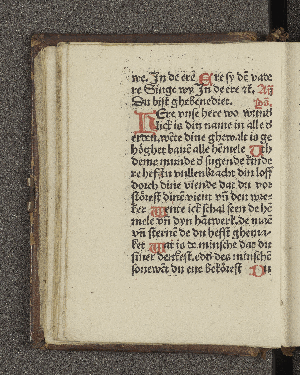 we. In de ere Ere sy dē vade
re Singe wy In de ere ꝛc. Aň
Du bist ghebenediet. Dō.
HEre vnse here wo wūn
lick is din name in alle d
erden, wēte dine ghewalt is ge
höghet bauē alle hēmele Vth
deme munde d sugende kinde
re hefstu vullenbracht din loff
dorch dine viende dat du vor
störest dinē vient vn̄ den wre
ker Wente ick schal seen de hē
mele vn̄ dyn hātwerk. de mane
vn̄ sterne de du hefst ghema
ket Wat is de minsche dat du
siner denkest. edder des minschē
sone wēte du ene bekörest Du